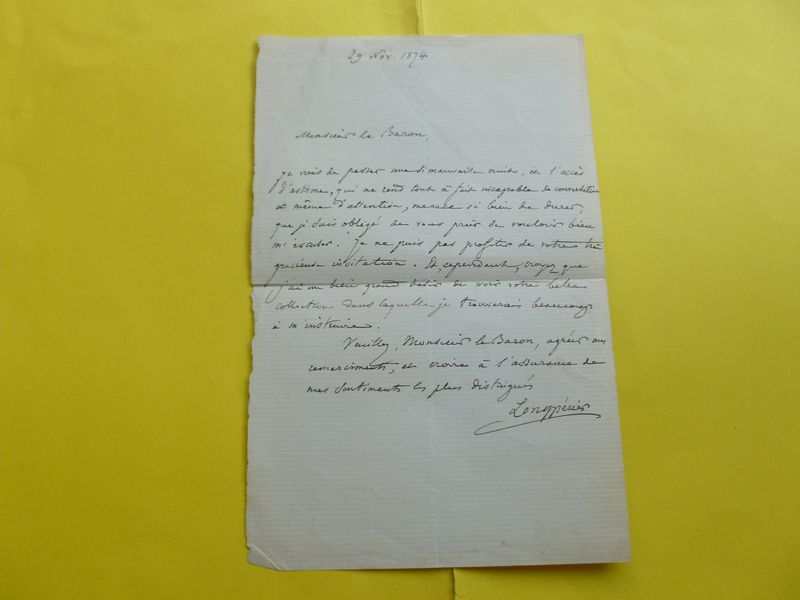 29 Nov. 1874
Monsieur le Baron,
Je viens de passer une si mauvaise nuit, et l'accès
d'asthme, qui me rend tout à fait incapable de conversation
et même d'attention, menace si bien de durer,
que je suis obligé de vous prier de vouloir bien
m'excuser. Je ne puis pas profiter de votre très
gracieuse invitation. Et, cependant, croyez que
j'ai un bien grand désir de voir votre belle
collection dans laquelle je trouverais beaucoup
à m'instruire.
Veuillez, Monsieur le Baron, agréer mes
remerciments, et croire à l'assurance de
mes sentiments les plus distingués
Longpérier